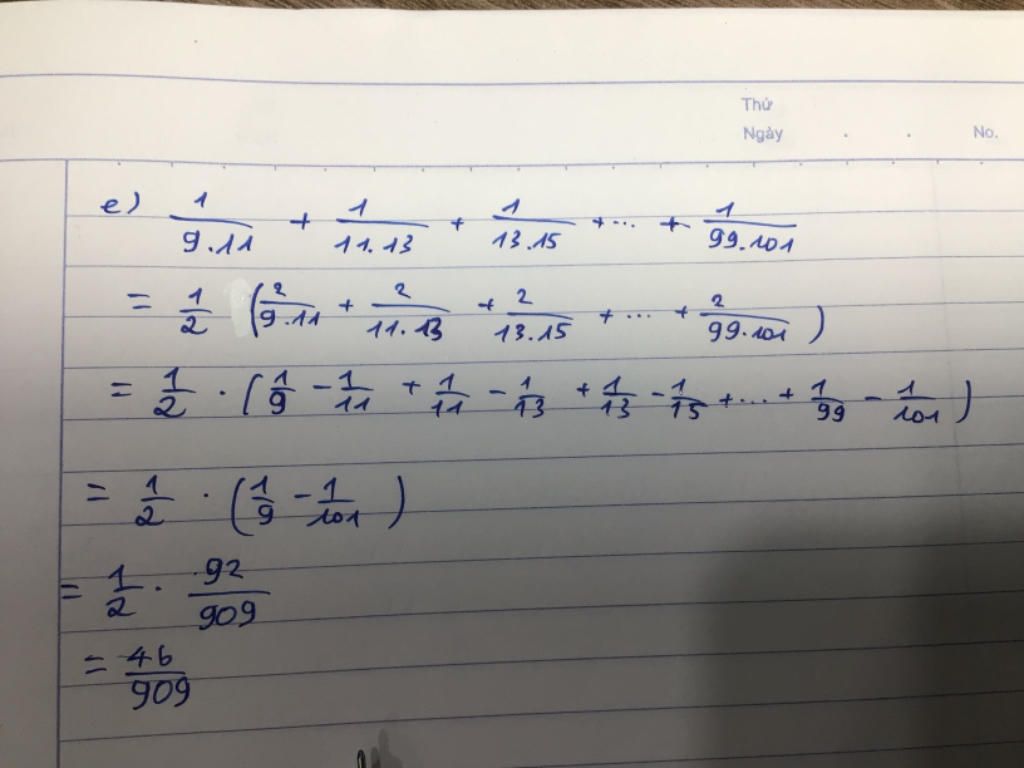 Thứ
Ngày . . No.
e) 1/9.11 + 1/11.13 + 1/13.15 + ... + 1/99.101
= 1/2 (2/9.11 + 2/11.13 + 2/13.15 + ... + 2/99.101)
= 1/2 . (1/9 - 1/11 + 1/11 - 1/13 + 1/13 - 1/15 + ... + 1/99 - 1/101)
= 1/2 . (1/9 - 1/101)
= 1/2 . 92/909
= 46/909